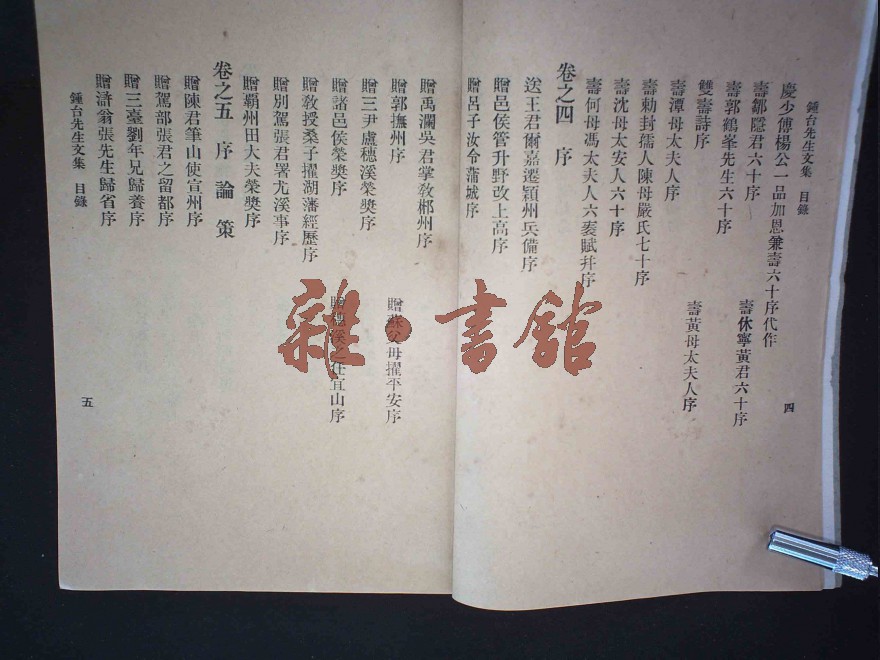 鍾台先生文集 目錄
四
慶少傅楊公一品加恩兼壽六十序代作
壽鄒隱君六十序
壽休寧黃君六十序
壽郭鶴峯先生六十序
雙壽詩序
壽黃母太夫人序
壽潭母太夫人序
壽勅封孺人陳母嚴氏七十序
壽沈母太安人六十序
壽何母馮太夫人六袠賦幷序
卷之四 序
送王君爾嘉遷潁州兵備序
贈邑侯管升野改上高序
贈呂子汝令蒲城序
贈禹瀾吳君掌敎郴州序
贈郭撫州序
贈蘇父母擢平安序
贈三尹盧穗溪榮奬序
贈諸邑侯榮奬序
贈穗溪之任宜山序
贈敎授桑子擢湖藩經歷序
贈別駕張君署尤溪事序
贈霸州田大夫榮奬序
卷之五 序 論 策
贈陳君筆山使宣州序
贈駕部張君之留都序
贈三臺劉年兄歸養序
贈滸翁張先生歸省序
鍾台先生文集 目錄
五
雜·書館